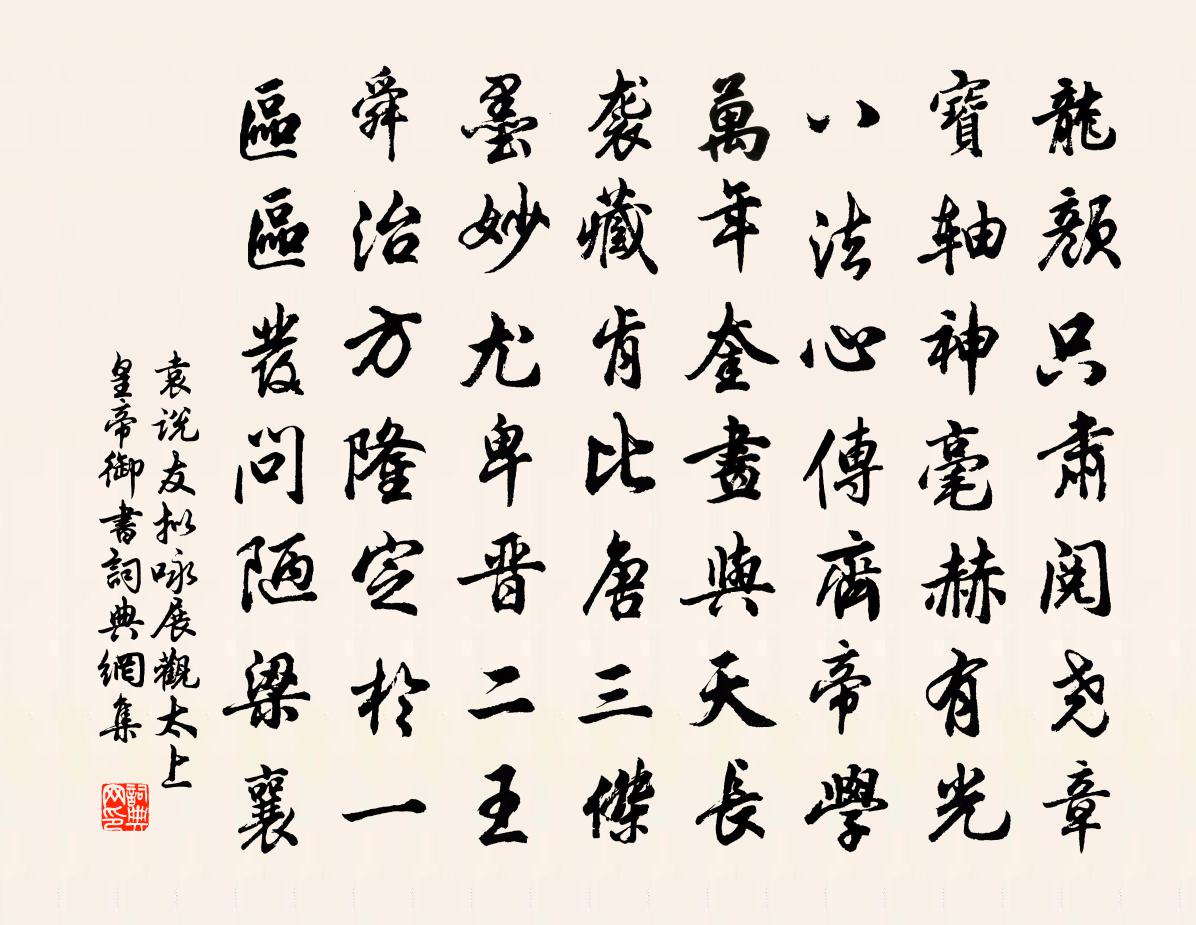 龍顏只肅閱堯章
寶軸神毫赫有光
八法心傳齊帝學
萬年奎畫與天長
袭藏肯比唐三傑
墨妙尤卑晋二王
舜治方隆定於一
區區發問陋梁襄
袁说友拟咏展觀太上
皇帝御書詞典網集
詞典网印